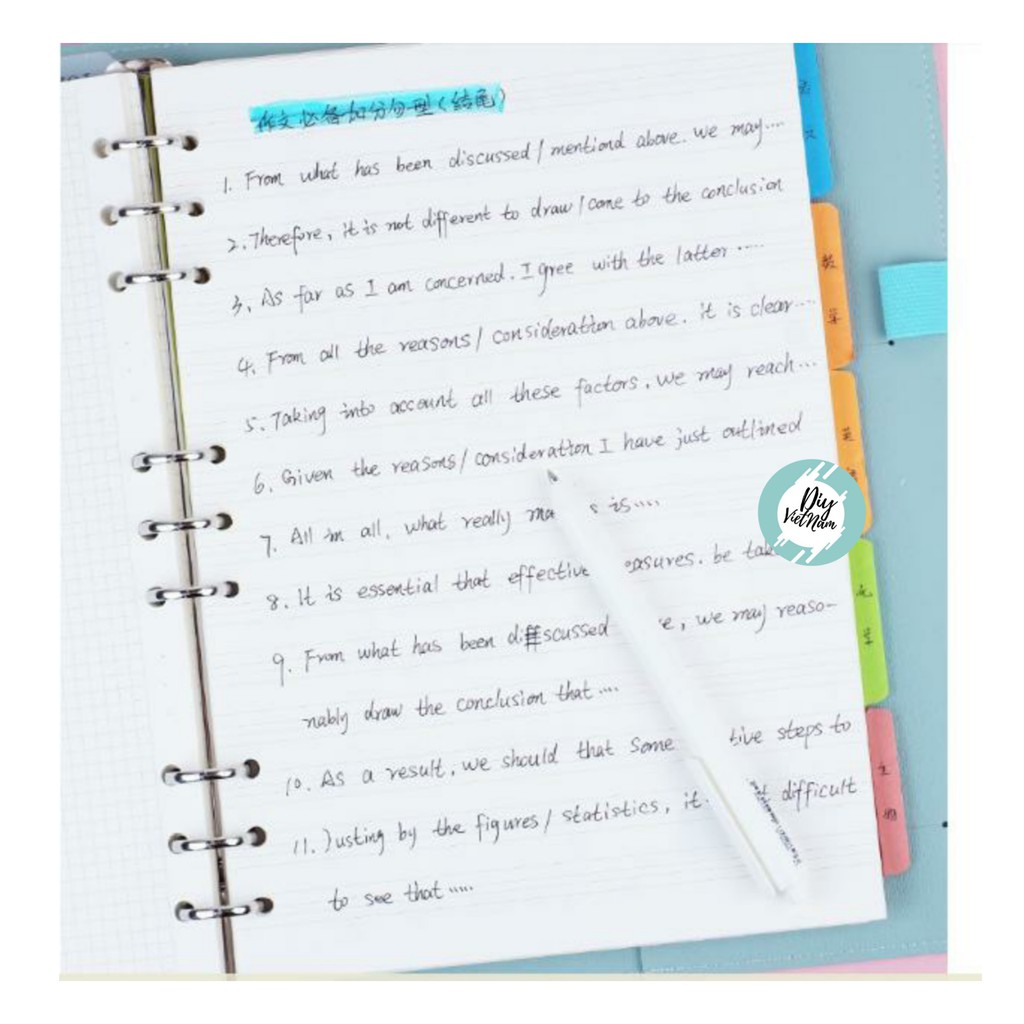 作文必备加分句型(结尾)
1. From what has been discussed/mentiond above. we may....
2. Therefore, it is not different to draw/come to the conclusion
3. As far as I am concerned. I gree with the latter.....
4. From all the reasons/consideration above. it is clear....
5. Taking into account all these factors. we may reach...
6. Given the reasons/consideration I have just outlined
7. All in all, what really is....
8. It is essential that effective be
9. From what has been discussed we may reaso-
nably draw the conclusion that....
10. As a result, we should that some steps to
11. Justing by the figures/statistics, it difficult
to see that.....
数学
英
化学
生物
Diy
VietNam